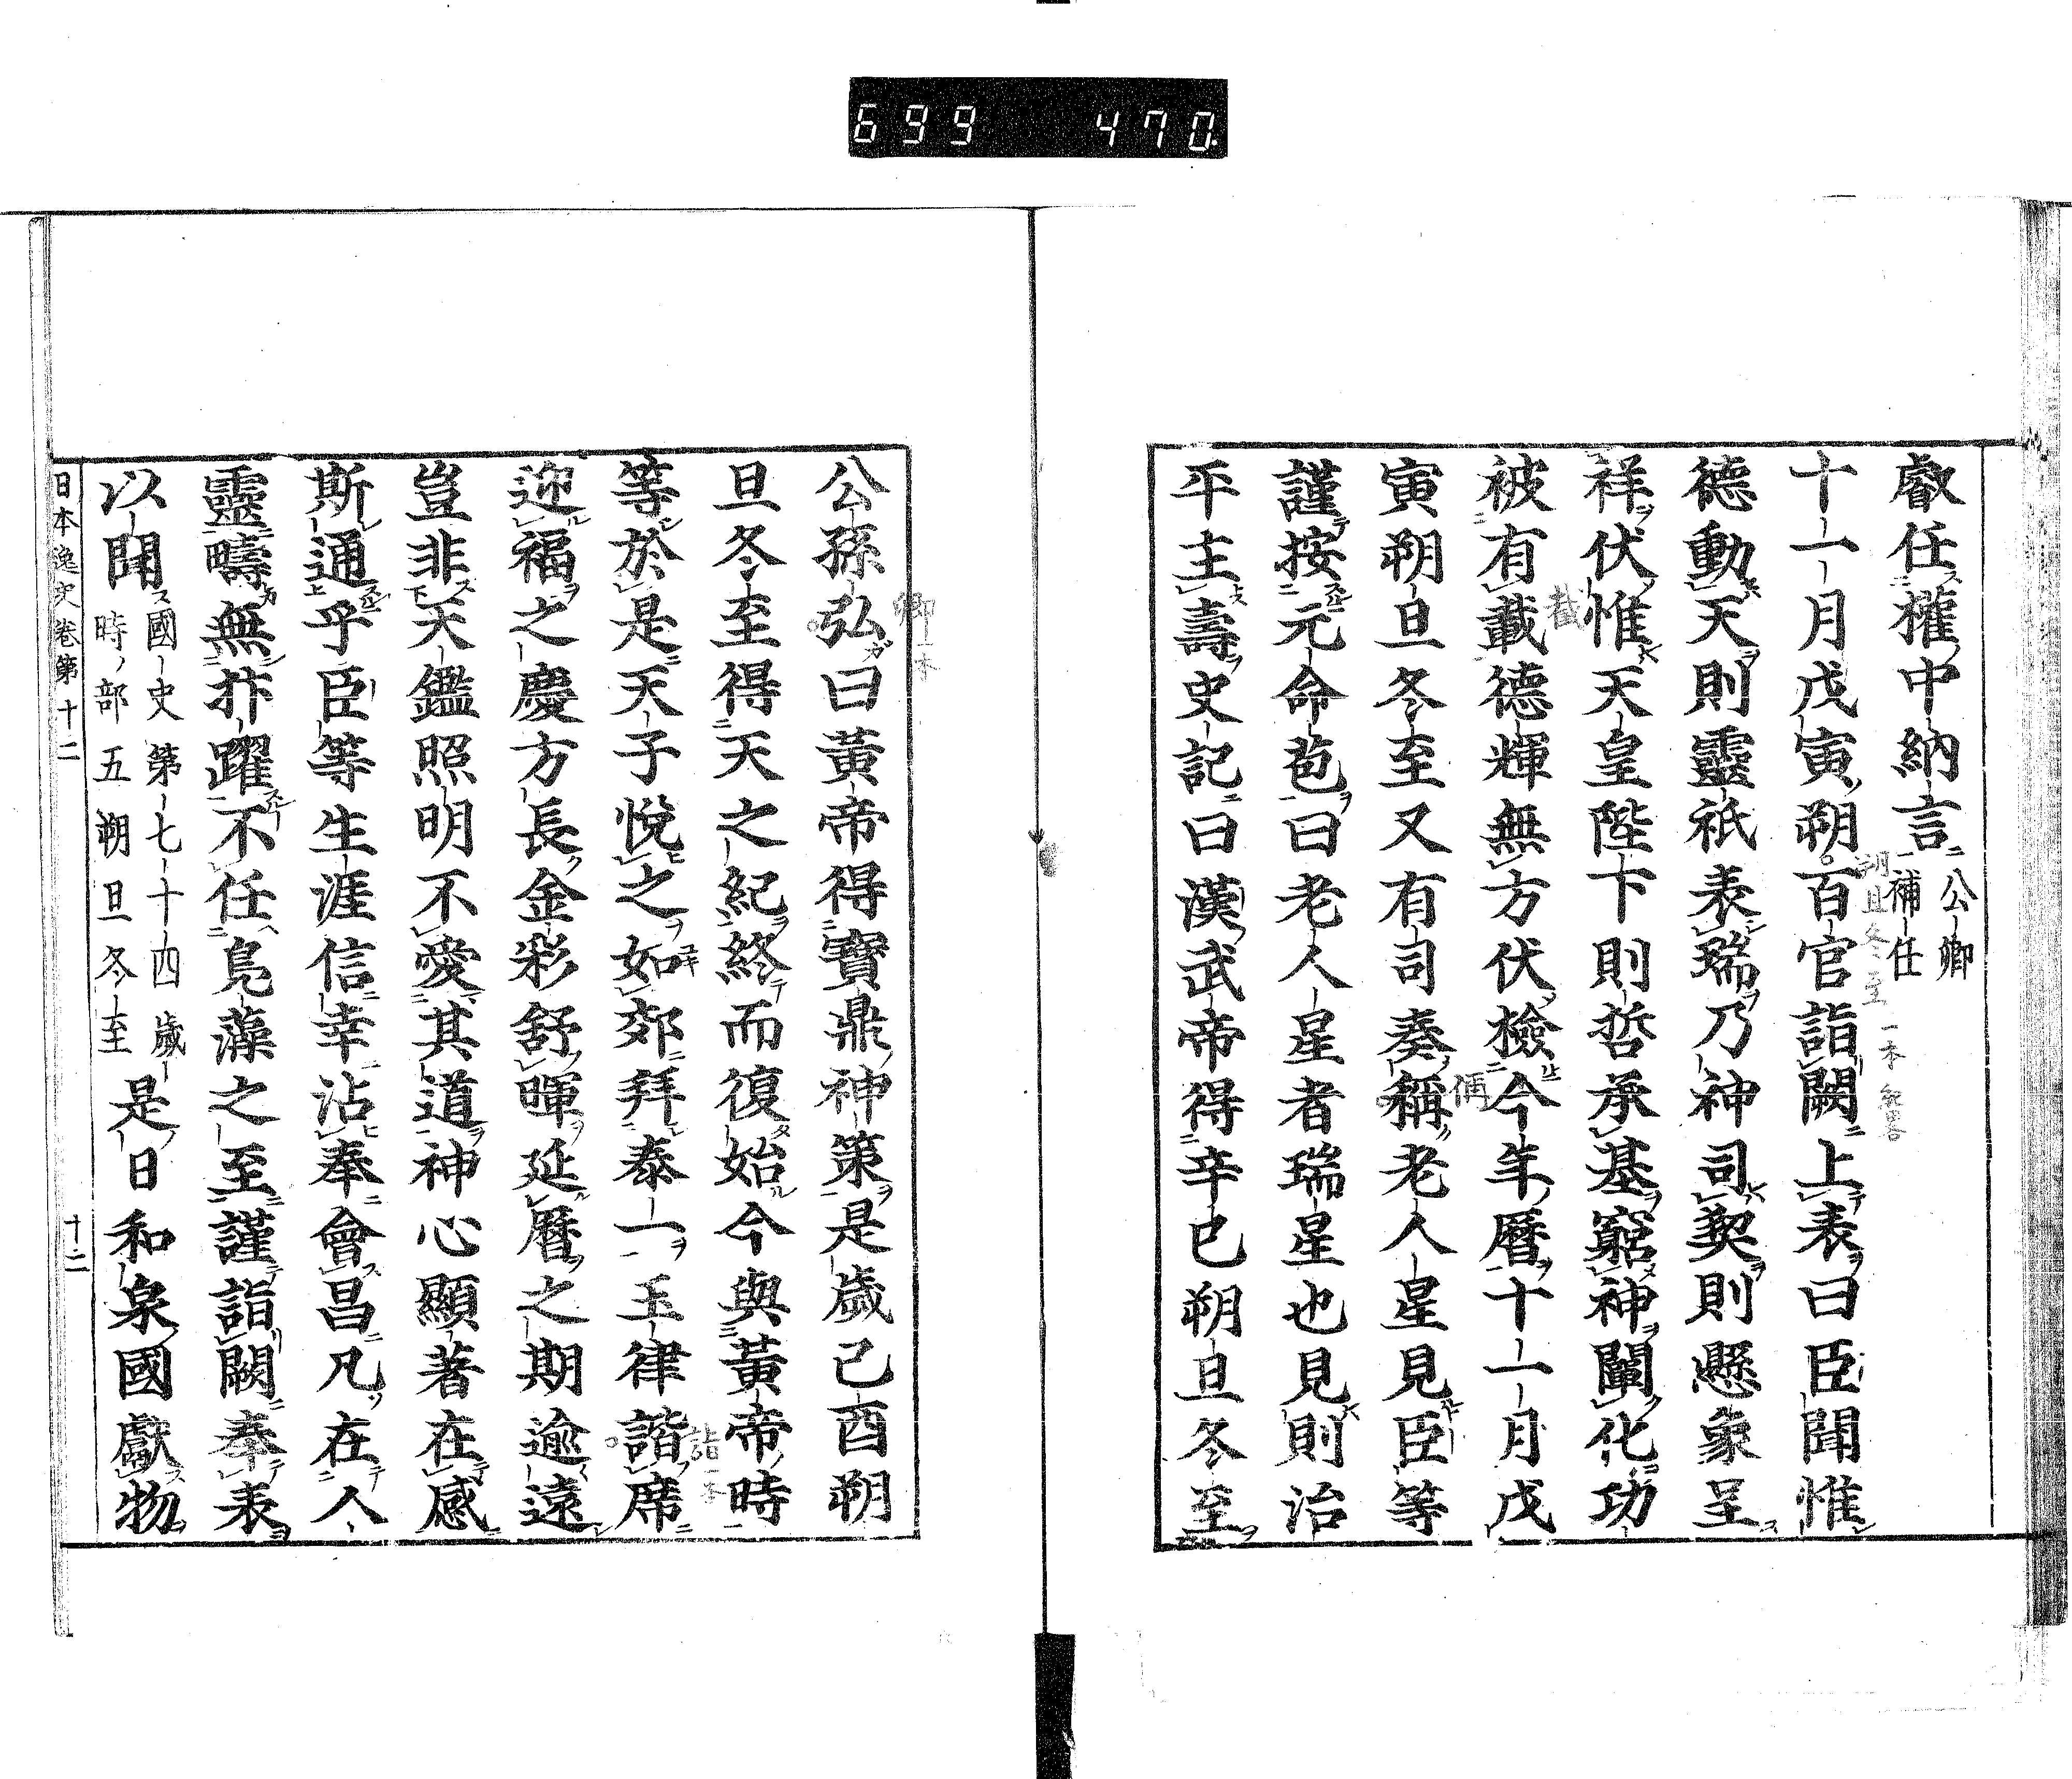 699 470
叡任權中納言公卿補任
十一月戊寅朔百官詣闕上表曰臣聞惟
德動天則靈祇表瑞乃神司契則懸象呈
祥伏惟天皇陛下則哲承基窮神闡化功
被有載德輝無方伏檢今年曆十一月戊
寅朔旦冬至又有司奏稱老人星見臣等
謹按元命苞曰老人星者瑞星也見則治
平主壽史記曰漢武帝得辛巳朔旦冬至
公孫弘曰黃帝得寶鼎神策是歲己酉朔
旦冬至得天之紀終而復始今與黃帝時
等於是天子悅之如郊拜泰一玉律諧席
迎福之慶方長金彩舒暉延曆之期逾遠
豈非天鑑照明不愛其道神心顯著在感
斯通乎臣等生涯信幸沾奉會昌凡在人
靈疇無抃躍不任鳧藻之至謹詣闕奉表
以聞國史第七十四歲時部五朔旦冬至是日和泉國獻物
日本逸史卷第十二
十二